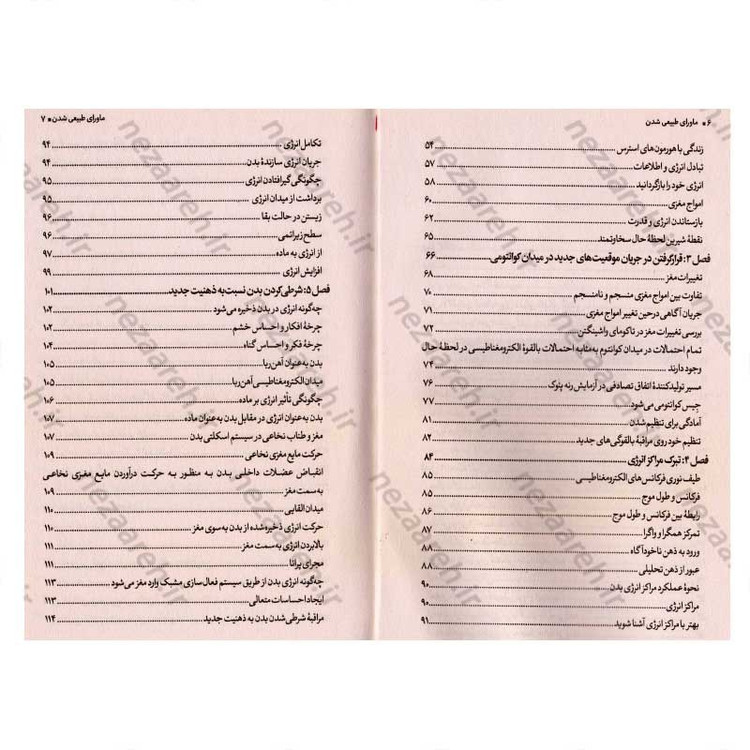 ۶ ■ ماورای طبیعی شدن
زندگی با هورمون‌های استرس ۵۴
تبادل انرژی و اطلاعات ۵۷
انرژی خود را بازگردانید ۵۸
امواج مغزی ۶۰
بازستاندن انرژی و قدرت ۶۲
نقطهٔ شیرین لحظهٔ حال سخاوتمند ۶۵
فصل ۳: قرارگرفتن در جریان موقعیت‌های جدید در میدان کوانتومی ۶۶
تغییرات مغز ۶۸
تفاوت بین امواج مغزی منسجم و نامنسجم ۷۰
جریان آگاهی درحین تغییر امواج مغزی ۷۱
بررسی تغییرات مغز در تاکومای واشینگتن ۷۲
تمام احتمالات در میدان کوانتوم به‌مثابه احتمالات بالقوهٔ الکترومغناطیسی در لحظهٔ حال
وجود دارند ۷۴
مسیر تولیدکنندهٔ اتفاق تصادفی در آزمایش رنه پئوک ۷۶
چیس کوانتومی می‌شود ۷۷
آمادگی برای تنظیم شدن ۸۱
تنظیم خود روی مراقبهٔ بالقوگی‌های جدید ۸۲
فصل ۴: تبرک مراکز انرژی ۸۴
طیف نوری فرکانس‌های الکترومغناطیسی ۸۵
فرکانس و طول موج ۸۵
رابطهٔ بین فرکانس و طول موج ۸۶
تمرکز همگرا و واگرا ۸۷
ورود به ذهن ناخودآگاه ۸۸
عبور از ذهن تحلیلی ۸۸
نحوهٔ عملکرد مراکز انرژی بدن ۹۰
مراکز انرژی ۹۰
بهتر با مراکز انرژی آشنا شوید ۹۱
ماورای طبیعی شدن ■ ۷
تکامل انرژی ۹۴
جریان انرژی سازندهٔ بدن ۹۴
چگونگی گیرافتادن انرژی ۹۵
برداشت از میدان انرژی ۹۵
زیستن در حالت بقا ۹۶
سطح زیراتمی ۹۶
از انرژی به ماده ۹۷
افزایش انرژی ۹۹
فصل ۵: شرطی‌کردن بدن نسبت به ذهنیت جدید ۱۰۱
چگونه انرژی در بدن ذخیره می‌شود ۱۰۲
چرخهٔ افکار و احساس خشم ۱۰۲
چرخهٔ فکر و احساس گناه ۱۰۴
بدن به‌عنوان آهن‌ربا ۱۰۵
میدان الکترومغناطیسی آهن‌ربا ۱۰۵
چگونگی تأثیر انرژی بر ماده ۱۰۶
بدن به‌عنوان انرژی در مقابل بدن به‌عنوان ماده ۱۰۷
مغز و طناب نخاعی در سیستم اسکلتی بدن ۱۰۷
حرکت مایع مغزی نخاعی ۱۰۹
انقباض عضلات داخلی بدن به منظور به حرکت درآوردن مایع مغزی نخاعی
به سمت مغز ۱۰۹
میدان القایی ۱۱۰
حرکت انرژی ذخیره‌شده از بدن به‌سوی مغز ۱۱۰
بالابردن انرژی به سمت مغز ۱۱۱
مجرای پرانا ۱۱۱
چگونه انرژی بدن از طریق سیستم فعال‌سازی مشبک وارد مغز می‌شود ۱۱۳
ایجاد احساسات متعالی ۱۱۳
مراقبهٔ شرطی‌شدن بدن به ذهنیت جدید ۱۱۴
nezaareh.ir